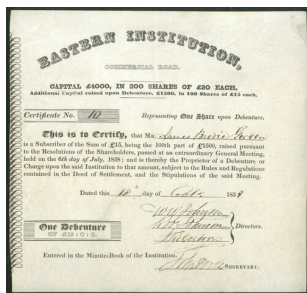 EASTERN INSTITUTION,
COMMERCIAL ROAD.
CAPITAL £4000, IN 200 SHARES OF £20 EACH.
Additional Capital raised upon Debenture, £1500, in 100 Shares of £15 each.
Certificate No. 10 Representing One Share upon Debenture.
This is to Certify, that Mr. James
is a Subscriber of the Sum of £15, being the 100th part of £1500, raised pursuant
to the Resolutions of the Shareholders, passed at an extraordinary General Meeting,
held on the 6th day of July, 1838; and is thereby the Proprietor of a Debenture or
Charge upon the said Institution to that amount, subject to the Rules and Regulations
contained in the Deed of Settlement, and the Stipulations of the said Meeting.
Dated this 18th day of 1839
One Debenture
OF £15 : 0 : 0.
Directors.
Entered in the Minute-Book of the Institution.
SECRETARY.